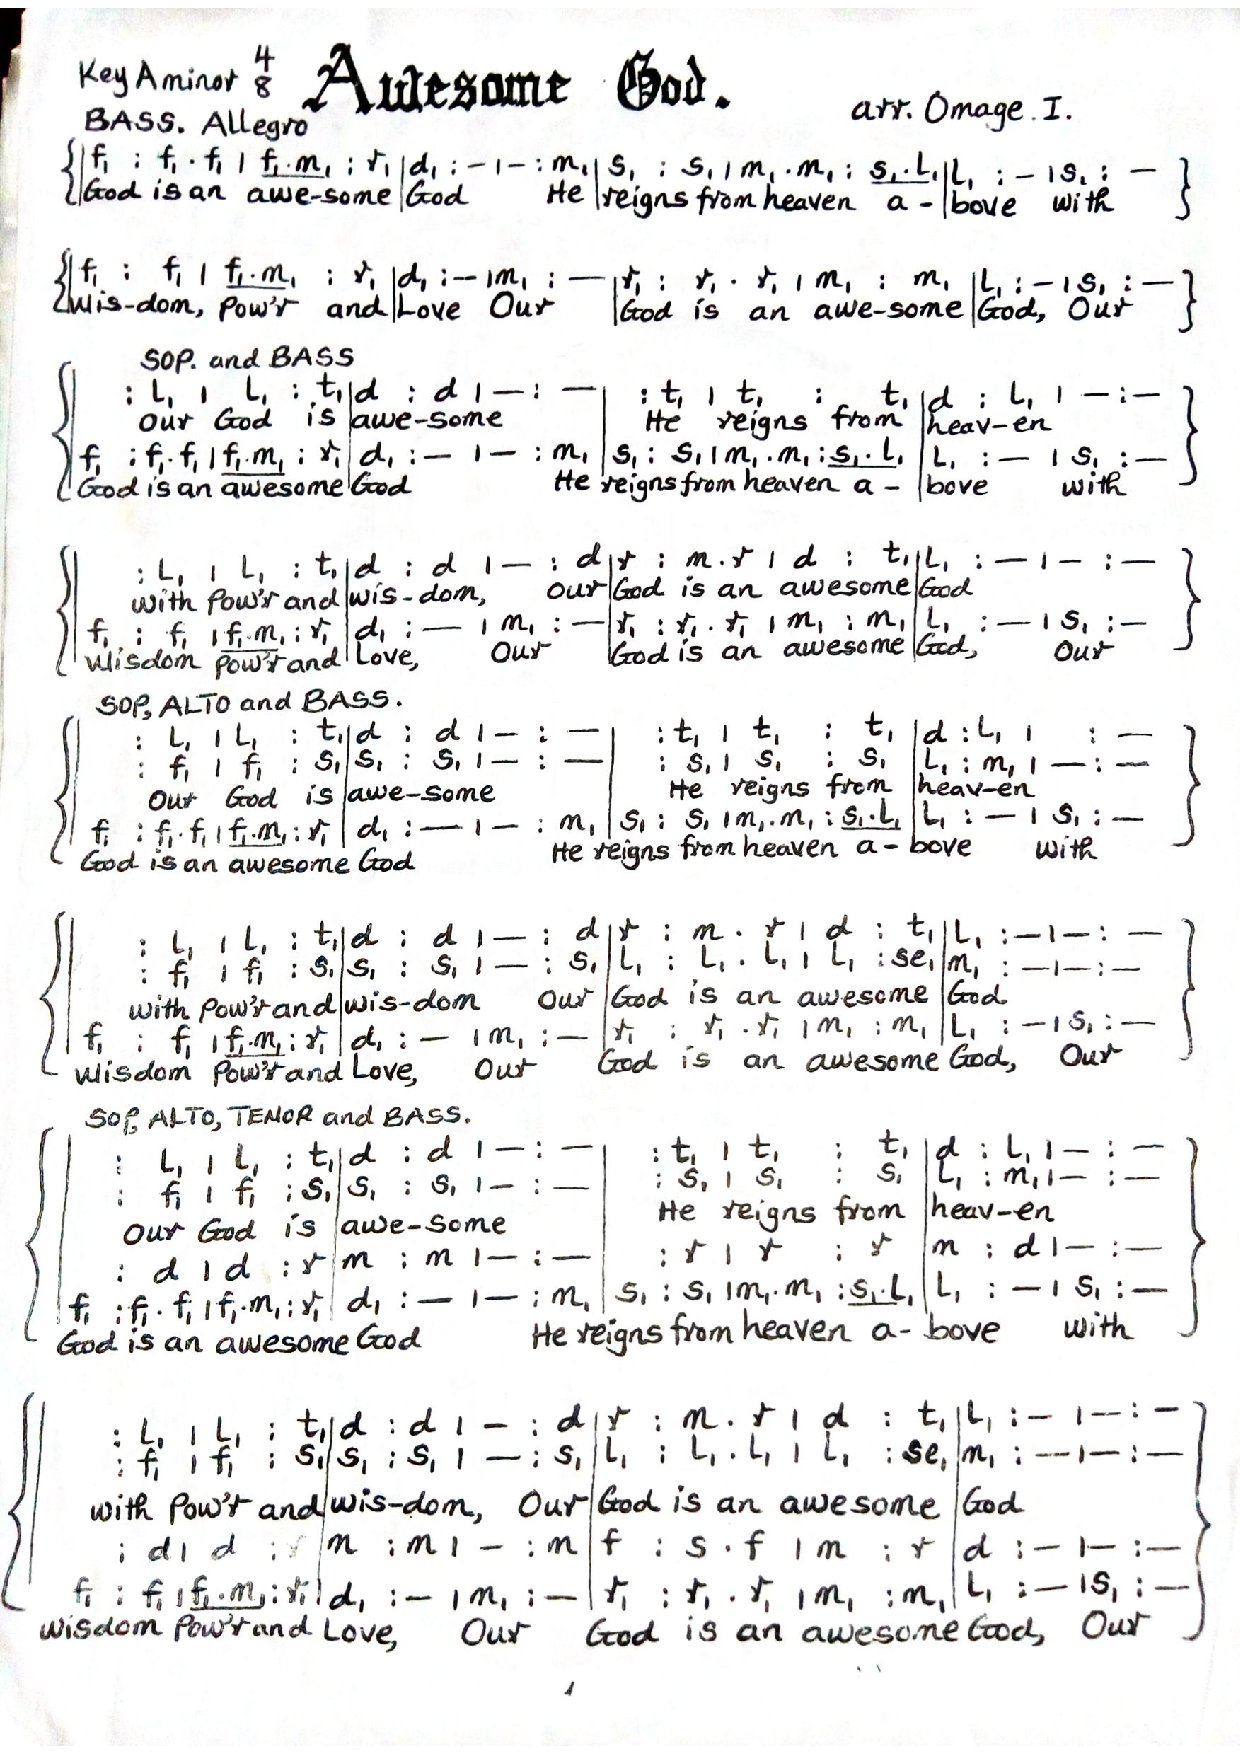 Key A minor 4/8 Awesome God.
arr. Omage . I.
BASS. Allegro
{| f₁ : f₁ . f₁ | f₁.m₁ : r₁ | d₁ : – | – : m₁ | s₁ : s₁ | m₁ . m₁ : s₁.L₁ | L₁ : – | s₁ : – }
God is an awe-some God He reigns from heaven a - bove with
{| f₁ : f₁ | f₁.m₁ : r₁ | d₁ : – | m₁ : – | r₁ : r₁ . r₁ | m₁ : m₁ | L₁ : – | s₁ : – }
Wis-dom, Pow'r and Love Our God is an awe-some God, Our
SOP. and BASS
: L₁ | L₁ : t₁ | d : d | – : – | : t₁ | t₁ : t₁ | d : L₁ | – : –
Our God is awe-some He reigns from heav-en
f₁ : f₁ . f₁ | f₁.m₁ : r₁ | d₁ : – | – : m₁ | s₁ : s₁ | m₁ . m₁ : s₁.L₁ | L₁ : – | s₁ : –
God is an awesome God He reigns from heaven a - bove with
: L₁ | L₁ : t₁ | d : d | – : d | r : m . r | d : t₁ | L₁ : – | – : –
with Pow'r and wis-dom, Our God is an awesome God
f₁ : f₁ | f₁.m₁ : r₁ | d₁ : – | m₁ : – | r₁ : r₁ . r₁ | m₁ : m₁ | L₁ : – | s₁ : –
Wisdom Pow'r and Love, Our God is an awesome God, Our
SOP, ALTO and BASS.
: L₁ | L₁ : t₁ | d : d | – : – | : t₁ | t₁ : t₁ | d : L₁ | : –
: f₁ | f₁ : s₁ | s₁ : s₁ | – : – | : s₁ | s₁ : s₁ | L₁ : m₁ | – : –
Our God is awe-some He reigns from heav-en
f₁ : f₁ . f₁ | f₁.m₁ : r₁ | d₁ : – | – : m₁ | s₁ : s₁ | m₁ . m₁ : s₁.L₁ | L₁ : – | s₁ : –
God is an awesome God He reigns from heaven a - bove with
: L₁ | L₁ : t₁ | d : d | – : d | r : m . r | d : t₁ | L₁ : – | – : –
: f₁ | f₁ : s₁ | s₁ : s₁ | – : s₁ | L₁ : L₁ . L₁ | L₁ : se₁ | m₁ : – | – : –
with Pow'r and wis-dom Our God is an awesome God.
f₁ : f₁ | f₁.m₁ : r₁ | d₁ : – | m₁ : – | r₁ : r₁ . r₁ | m₁ : m₁ | L₁ : – | s₁ : –
wisdom Pow'r and Love, Our God is an awesome God, Our
SOP, ALTO, TENOR and BASS.
: L₁ | L₁ : t₁ | d : d | – : – | : t₁ | t₁ : t₁ | d : L₁ | – : –
: f₁ | f₁ : s₁ | s₁ : s₁ | – : – | : s₁ | s₁ : s₁ | L₁ : m₁ | – : –
Our God is awe-some He reigns from heav-en
: d | d : r | m : m | – : – | : r | r : r | m : d | – : –
f₁ : f₁ . f₁ | f₁.m₁ : r₁ | d₁ : – | – : m₁ | s₁ : s₁ | m₁ . m₁ : s₁.L₁ | L₁ : – | s₁ : –
God is an awesome God He reigns from heaven a - bove with
: L₁ | L₁ : t₁ | d : d | – : d | r : m . r | d : t₁ | L₁ : – | – : –
: f₁ | f₁ : s₁ | s₁ : s₁ | – : s₁ | L₁ : L₁ . L₁ | L₁ : se₁ | m₁ : – | – : –
with Pow'r and wis-dom, Our God is an awesome God
: d | d : r | m : m | – : m | f : s . f | m : r | d : – | – : –
f₁ : f₁ | f₁.m₁ : r₁ | d₁ : – | m₁ : – | r₁ : r₁ . r₁ | m₁ : m₁ | L₁ : – | s₁ : –
wisdom Pow'r and Love, Our God is an awesome God, Our
1